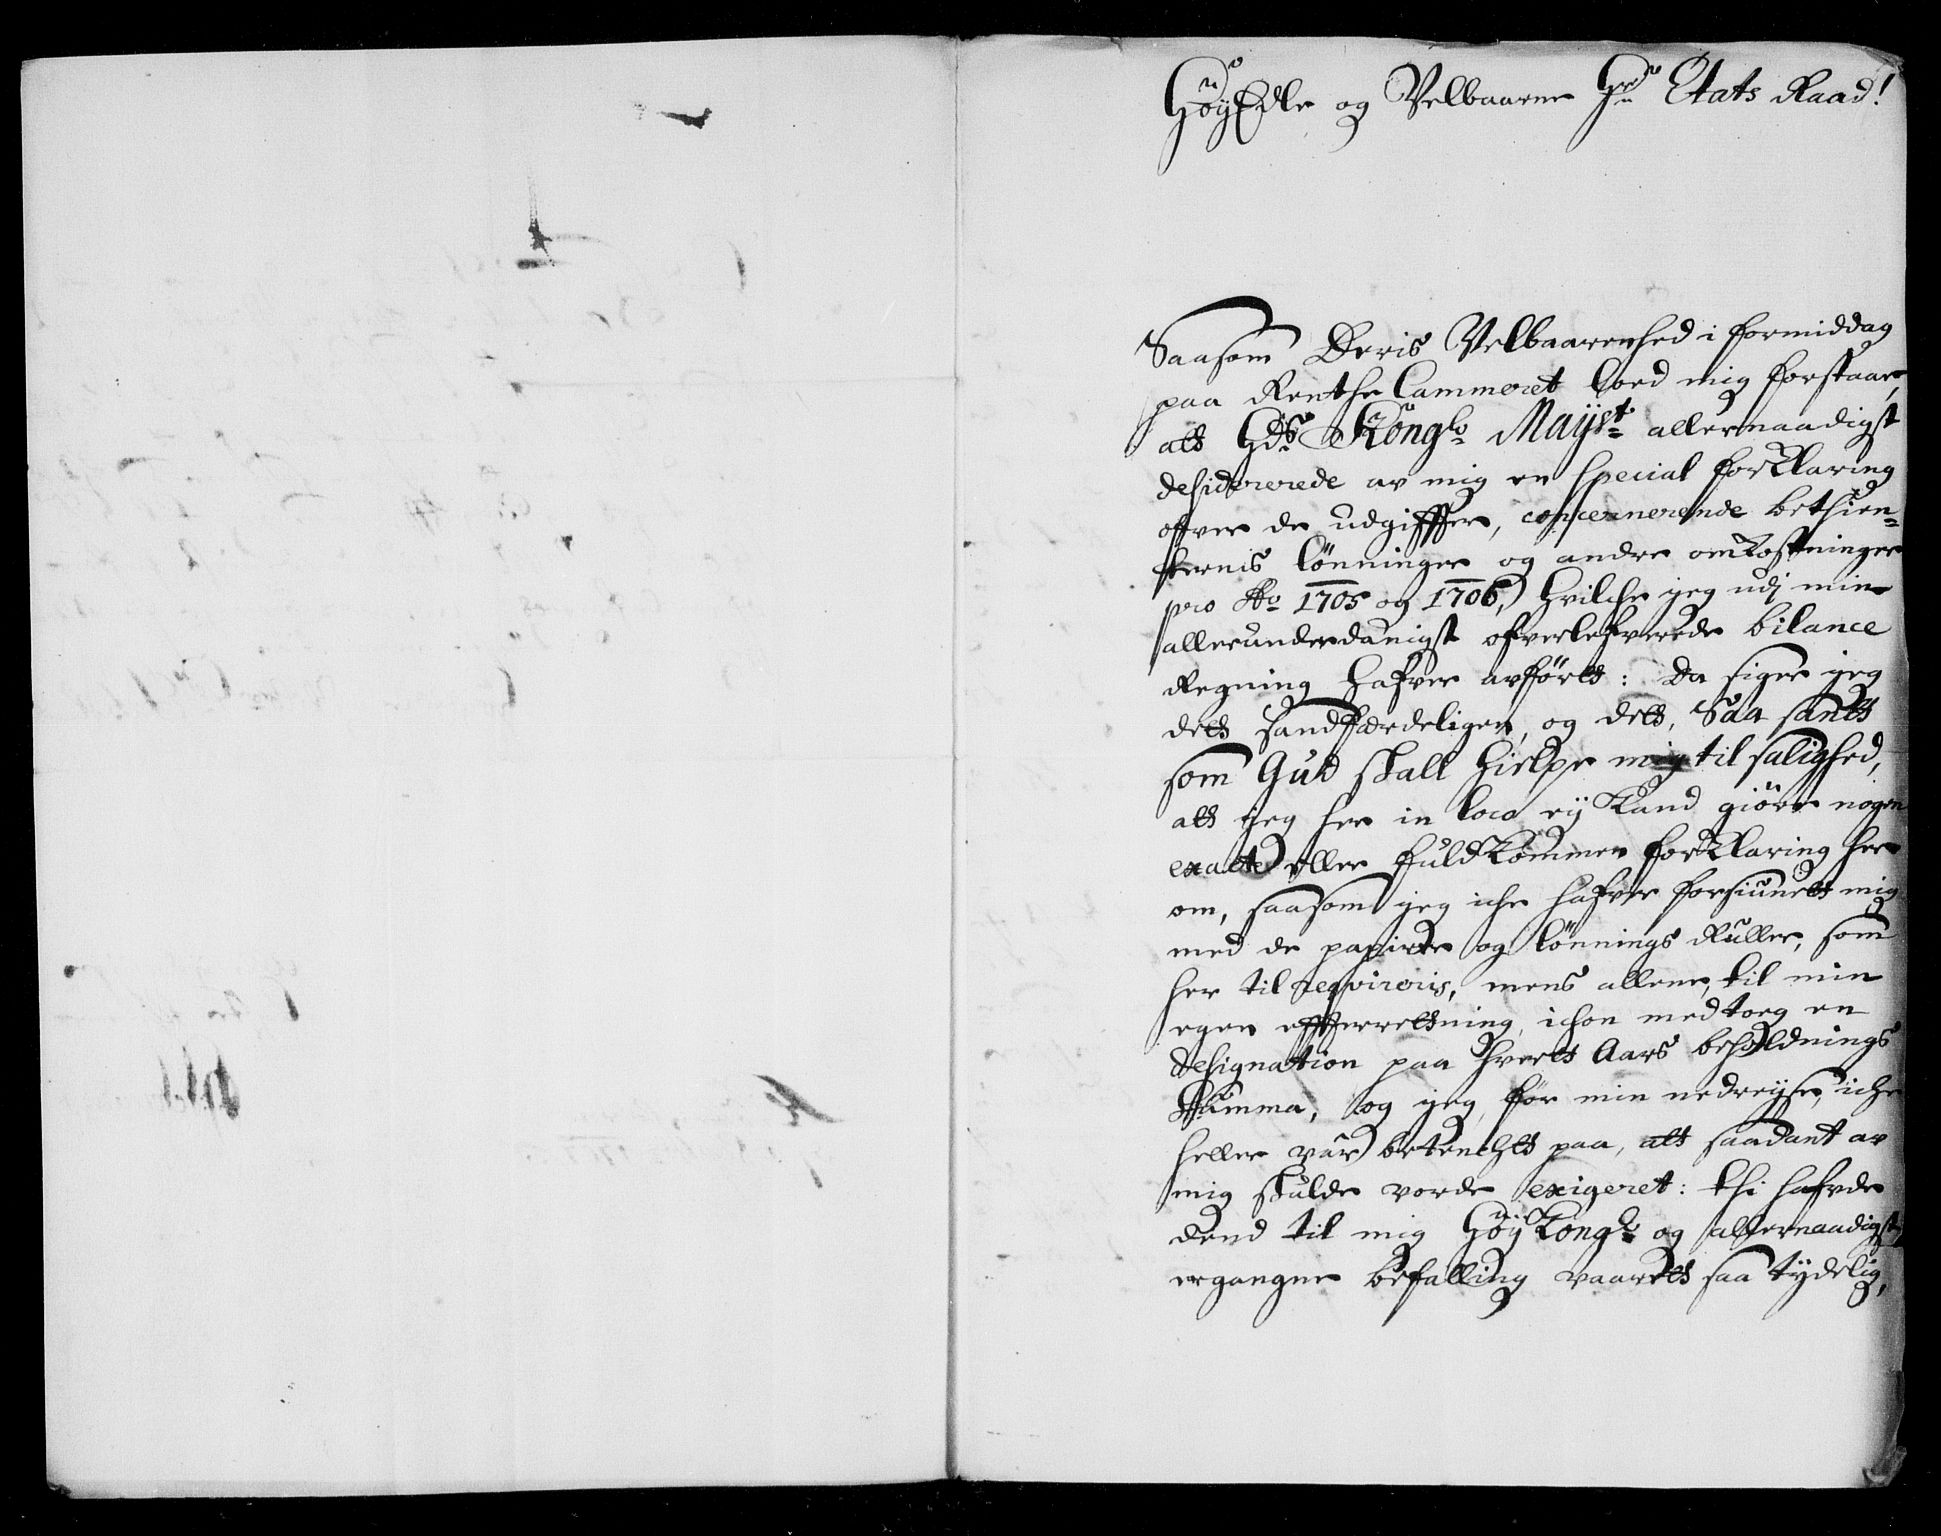 HøyEdle og Velbaarne Hr. Etats Raad!
Saasom Deris Velbaarenhed i formiddag
paa Renthe Cammeret loed mig forstaae,
att Hds Kongl. Mayst. allernaadigst
desidererede av mig en special forklaring
ofver de udgiffter, concernerende bethien-
ternis lønninger og andre omkostninger
pro Ao 1705 og 1706, hvilche jeg udj min
allerunderdanigst ofverlefverede bilance
Regning hafver anførtt: Da siger jeg
dett sandfærdeligen, og dett, Saa santt
som Gud skall hielpe mig til salighed,
att jeg her in loco ey kand giøre nogen
exacte eller fuldkommen forklaring her
om, saasom jeg iche hafver forsiunett mig
med de papirer og lønnings Ruller, som
her til reqvireris, mens allene, til min
egen effterrettning, ichon medtoeg en
designation paa hvertt Aars beholdnings
Summa, og jeg, før min nedreyse, iche
heller var betenchtt paa, att saadant av
mig skulde vorde exigeret: thi hafvde
dend til mig Høy Kongl. og allernaadigst
ergangne befalling vaarett saa tydelig,